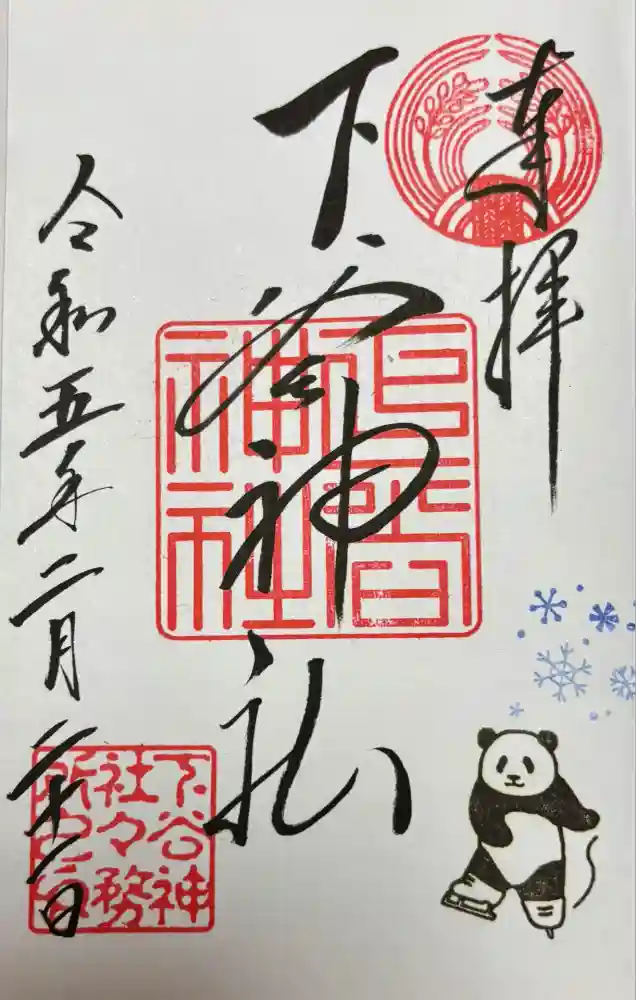 奉拝
下谷神社
下谷
神社
令和五年二月二十一日
下谷神
社々務
所之印